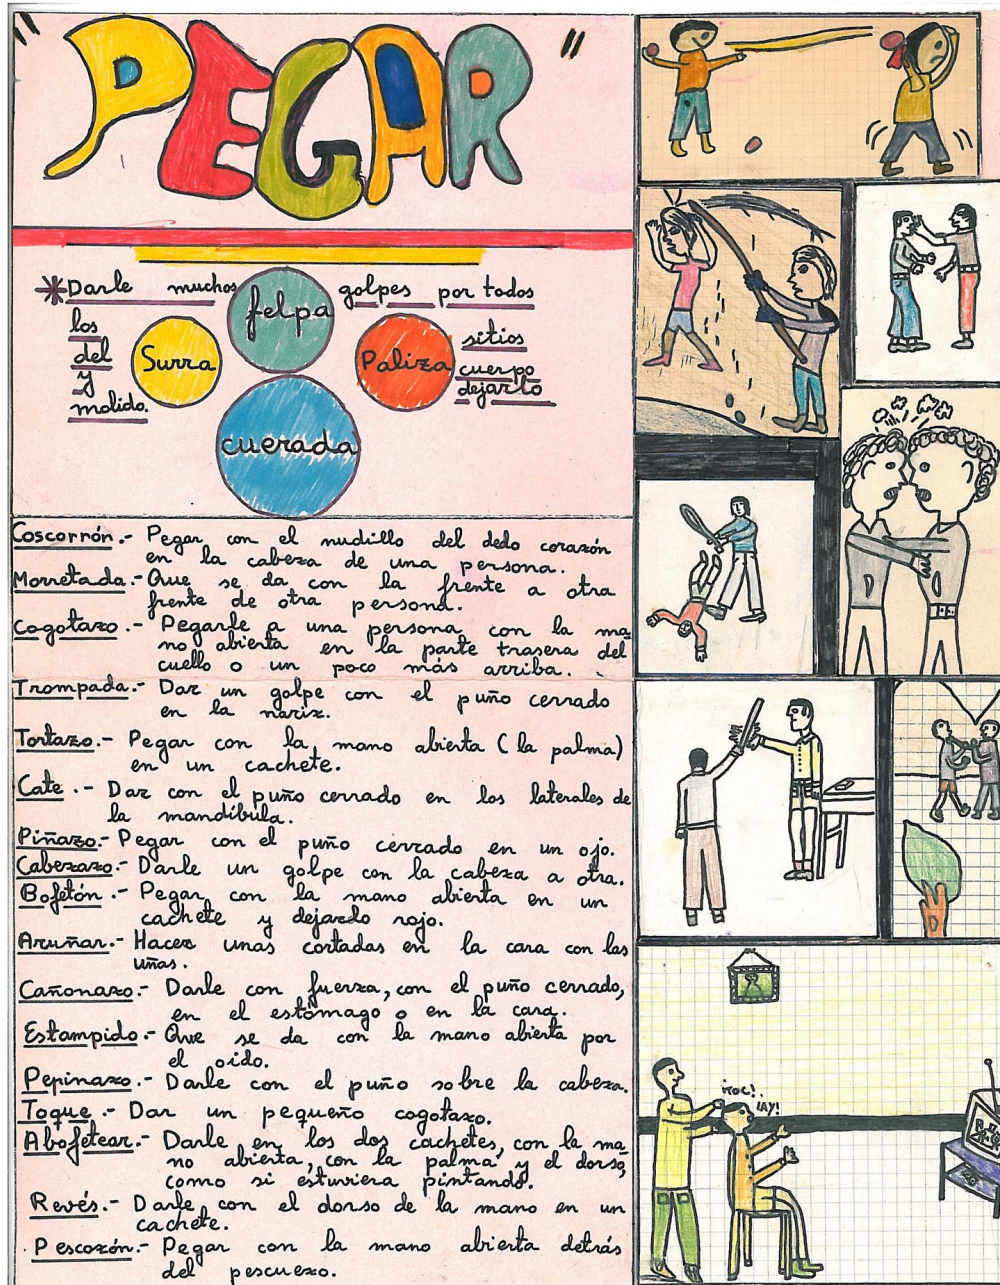 "PEGAR"
*Darle muchos golpes por todos
los sitios
del cuerpo
y dejarlo
molido.
felpa
Surra
Paliza
cuerada
Coscorrón.- Pegar con el nudillo del dedo corazón
en la cabeza de una persona.
Morretada.- Que se da con la frente a otra
frente de otra persona.
Cogotazo.- Pegarle a una persona con la ma
no abierta en la parte trasera del
cuello o un poco más arriba.
Trompada.- Dar un golpe con el puño cerrado
en la nariz.
Tortazo.- Pegar con la mano abierta (la palma)
en un cachete.
Cate.- Dar con el puño cerrado en los laterales de
la mandíbula.
Piñazo.- Pegar con el puño cerrado en un ojo.
Cabezazo.- Darle un golpe con la cabeza a otra.
Bofetón.- Pegar con la mano abierta en un
cachete y dejardo rojo.
Aruñar.- Hacer unas cortadas en la cara con las
uñas.
Cañonazo.- Darle con fuerza, con el puño cerrado,
en el estómago o en la cara.
Estampido.- Que se da con la mano abierta por
el oido.
Pepinazo.- Darle con el puño sobre la cabeza.
Toque.- Dar un pequeño cogotazo.
Abofetear.- Darle en los dos cachetes, con la ma
no abierta, con la palma y el dorso,
como si estuviera pintando.
Revés.- Darle con el dorso de la mano en un
cachete.
Pescozón.- Pegar con la mano abierta detrás
del pescuezo.
¡TOC!
¡AY!